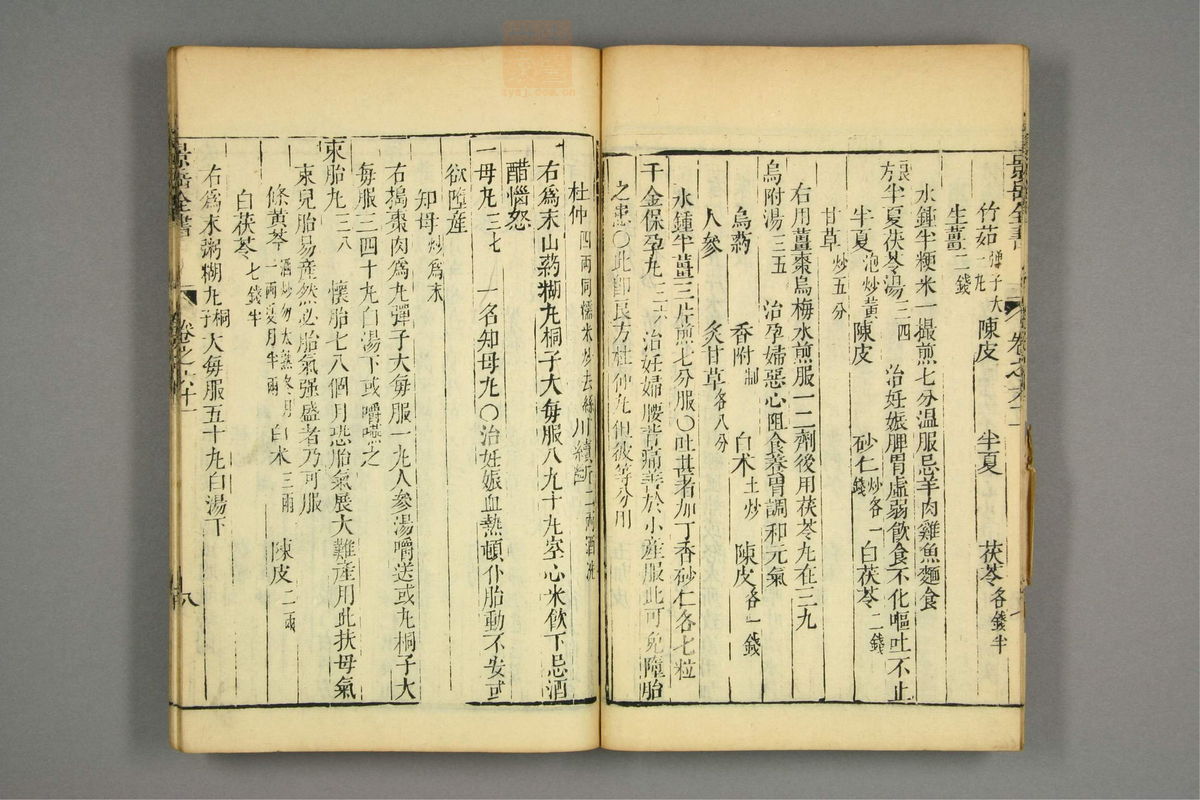 景岳全書
卷之六十一
竹茹彈子大一丸 陳皮 半夏 茯苓各錢半
生薑二錢
水鍾半粳米一撮煎七分温服忌羊肉雞魚麵食
良方半夏茯苓湯三四 治妊娠脾胃虛弱飲食不化嘔吐不止
半夏泡炒黃 陳皮 砂仁炒各一錢 白茯苓二錢
甘草炒五分
右用薑棗烏梅水煎服一二劑後用茯苓丸在三九
烏附湯三五 治孕婦惡心阻食養胃調和元氣
烏藥 香附制 白术土炒 陳皮各一錢
人參 炙甘草各八分
水鍾半薑三片煎七分服○吐甚者加丁香砂仁各七粒
千金保孕丸三六 治妊婦腰背痛善於小産服此可免墮胎
之患○此即良方杜仲丸但彼等分用
杜仲四兩同糯米炒去絲 川續斷二兩酒洗
右爲末山藥糊丸桐子大每服八九十丸空心米飲下忌酒
醋惱怒
一母丸三七 一名知母丸○治妊娠血熱頓仆胎動不安或
欲墮産
知母炒爲末
右搗棗肉爲丸彈子大每服一丸人參湯嚼送或丸桐子大
每服三四十丸白湯下或嚼嚥之
束胎丸三八 懷胎七八個月恐胎氣展大難産用此扶母氣
束兒胎易産然必胎氣强盛者乃可服
條黃芩酒炒勿太熟冬月一兩夏月半兩 白术三兩 陳皮二兩
白茯苓七錢半
右爲末粥糊丸桐子大每服五十丸白湯下
景岳全書
卷之六十一
八